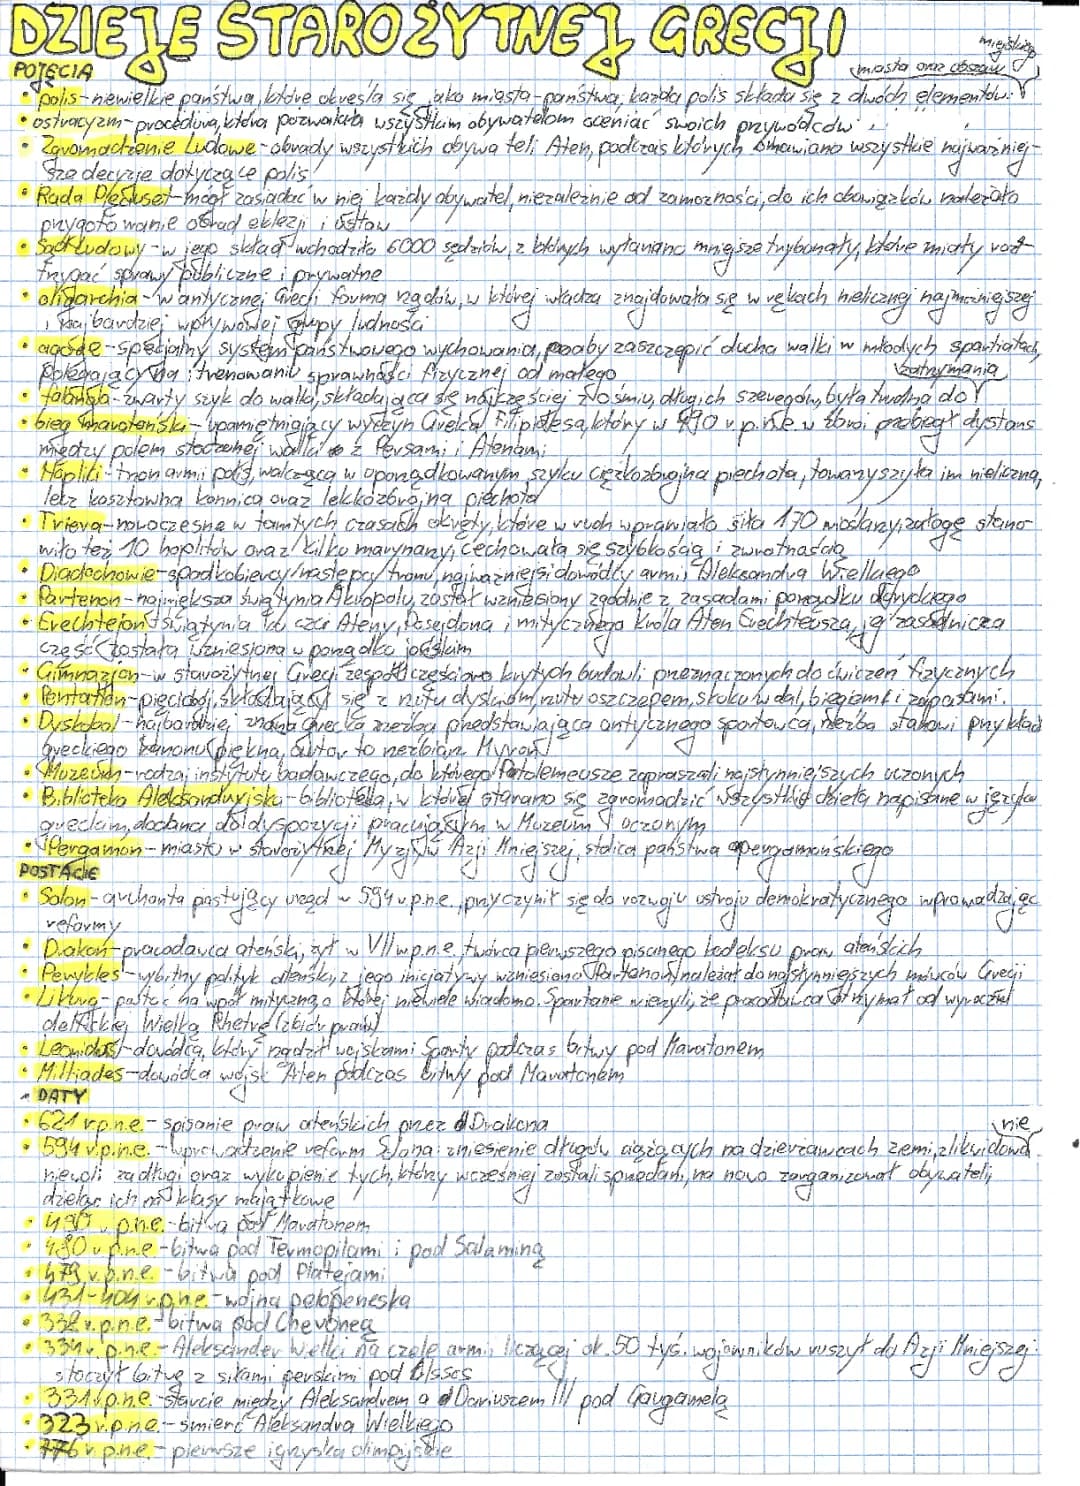 DZIEJE STAROŻYTNEJ GRECJI
POJĘCIA
miejskiego
miasta oraz obszaru
• polis-niewielkie państwa, które określa się jako miasta-państwa, każda polis składa się z dwóch elementów:
• ostracyzm-procedura, która pozwalała wszystkim obywatelom oceniać swoich przywódców
• Zgromadzenie Ludowe-obrady wszystkich obywateli Aten, podczas których omawiano wszystkie najważniej-
sze decyzje dotyczące polis
• Rada Pięciuset-mógł zasiadać w niej każdy obywatel, niezależnie od zamożności, do ich obowiązków należało
przygotowanie obrad eklezji i ustaw
• Sąd Ludowy-w jego skład wchodziło 6000 sędziów, z których wyłaniano mniejsze trybunały, które miały rozs-
trzygać sprawy publiczne i prywatne
• oligarchia-w antycznej Grecji forma rządów, w której władza znajdowała się w rękach nielicznej najmożniejszej
i najbardziej wpływowej grupy ludności
• agogé-specjalny system państwowego wychowania, aby zaszczepić ducha walki w młodych spartiatach,
polegający na trenowaniu sprawności fizycznej od małego
zatrzymania
• falanga-zwarty szyk do walki, składająca się najczęściej z ośmiu, długich szeregów, była trudna do
• bieg maratoński-upamiętniający wyczyn Greka Filipidesa, który w 490 r. p.n.e. w zbroi przebiegł dystans
między polem stoczonej walki z Persami i Atenami
• Hoplici-trzon armii polis, walcząca w uporządkowanym szyku ciężkozbrojna piechota, towarzyszyła im nieliczna,
lecz kosztowna konnica oraz lekkozbrojna piechota
• Triera-nowoczesne w tamtych czasach okręty, które w ruch wprawiało siła 170 wioślarzy, załogę stano-
wiło też 10 hoplitów oraz kilku marynarzy, cechowała się szybkością i zwrotnością
• Diadochowie-spadkobiercy/następcy tronu, najważniejsi dowódcy armii Aleksandra Wielkiego
• Partenon-największa świątynia Akropolu, został wzniesiony zgodnie z zasadami porządku doryckiego
• Erechtejon-świątynia ku czci Ateny, Posejdona i mitycznego króla Aten Erechteusza, jej zasadnicza
część została wzniesiona w porządku jońskim
• Gimnazjon-w starożytnej Grecji zespół częściowo krytych budowli przeznaczonych do ćwiczeń fizycznych
• Pentatlon-pięciobój, składający się z rzutu dyskiem, rzutu oszczepem, skoku w dal, biegiem i zapasami.
• Dyskobol-najbardziej znana grecka rzeźba przedstawiająca antycznego sportowca, rzeźba stanowi przykład
greckiego kanonu piękna, autor to rzeźbiarz Myron
• Muzeum-rodzaj instytutu badawczego, do którego Ptolemeusze zapraszali najsłynniejszych uczonych
• Biblioteka Aleksandryjska-biblioteka, w której starano się zgromadzić wszystkie dzieła napisane w języku
greckim, dodana do dyspozycji pracującym w Muzeum uczonym
• Pergamon-miasto w starożytnej Myzji w Azji Mniejszej, stolica państwa pergamońskiego
POSTACIE
• Solon-archonta pastujący urząd w 594 r. p.n.e., przyczynił się do rozwoju ustroju demokratycznego wprowadzając
reformy
• Drakon-pracodawca ateński, żył w VII w p.n.e., twórca pierwszego pisanego kodeksu praw ateńskich
• Perykles-wybitny polityk ateński, z jego inicjatywy wzniesiono Partenon, należał do najsłynniejszych mówców Grecji
• Likurg-postać na wpół mityczna, o której niewiele wiadomo. Spartanie wierzyli, że prawodawca otrzymał od wyroczni
delfickiej Wielką Rhetrę (zbiór praw)
• Leonidas-dowódca, który rządził wojskami Sparty podczas bitwy pod Maratonem
• Miltiades-dowódca wojsk Aten podczas bitwy pod Maratonem
DATY
• 621 r.p.n.e.-spisanie praw ateńskich przez Drakona
nie
• 594 r.p.n.e.-wprowadzenie reform Solona: zniesienie długów ciążących na dzierżawcach ziemi, zlikwidowa
niewoli za długi oraz wykupienie tych, którzy wcześniej zostali sprzedani, na nowo zorganizował obywateli,
dzieląc ich na klasy majątkowe
• 490 r. p.n.e.-bitwa pod Maratonem
• 480 r. p.n.e.-bitwa pod Termopilami i pod Salaminą
• 479 r. p.n.e.-bitwa pod Platejami
• 431-404 r.p.n.e.-wojna peloponeska
• 338 r.p.n.e.-bitwa pod Cheroneą
• 334 r. p.n.e.-Aleksander Wielki na czele armii liczącej ok. 50 tyś. wojowników ruszył do Azji Mniejszej.
stoczył bitwę z siłami perskimi pod Issos
• 331 r.p.n.e.-starcie między Aleksandrem a Dariuszem III pod Gaugamelą
• 323 r.p.n.e.-śmierć Aleksandra Wielkiego
• 776 r p.n.e.-pierwsze igrzyska olimpijskie